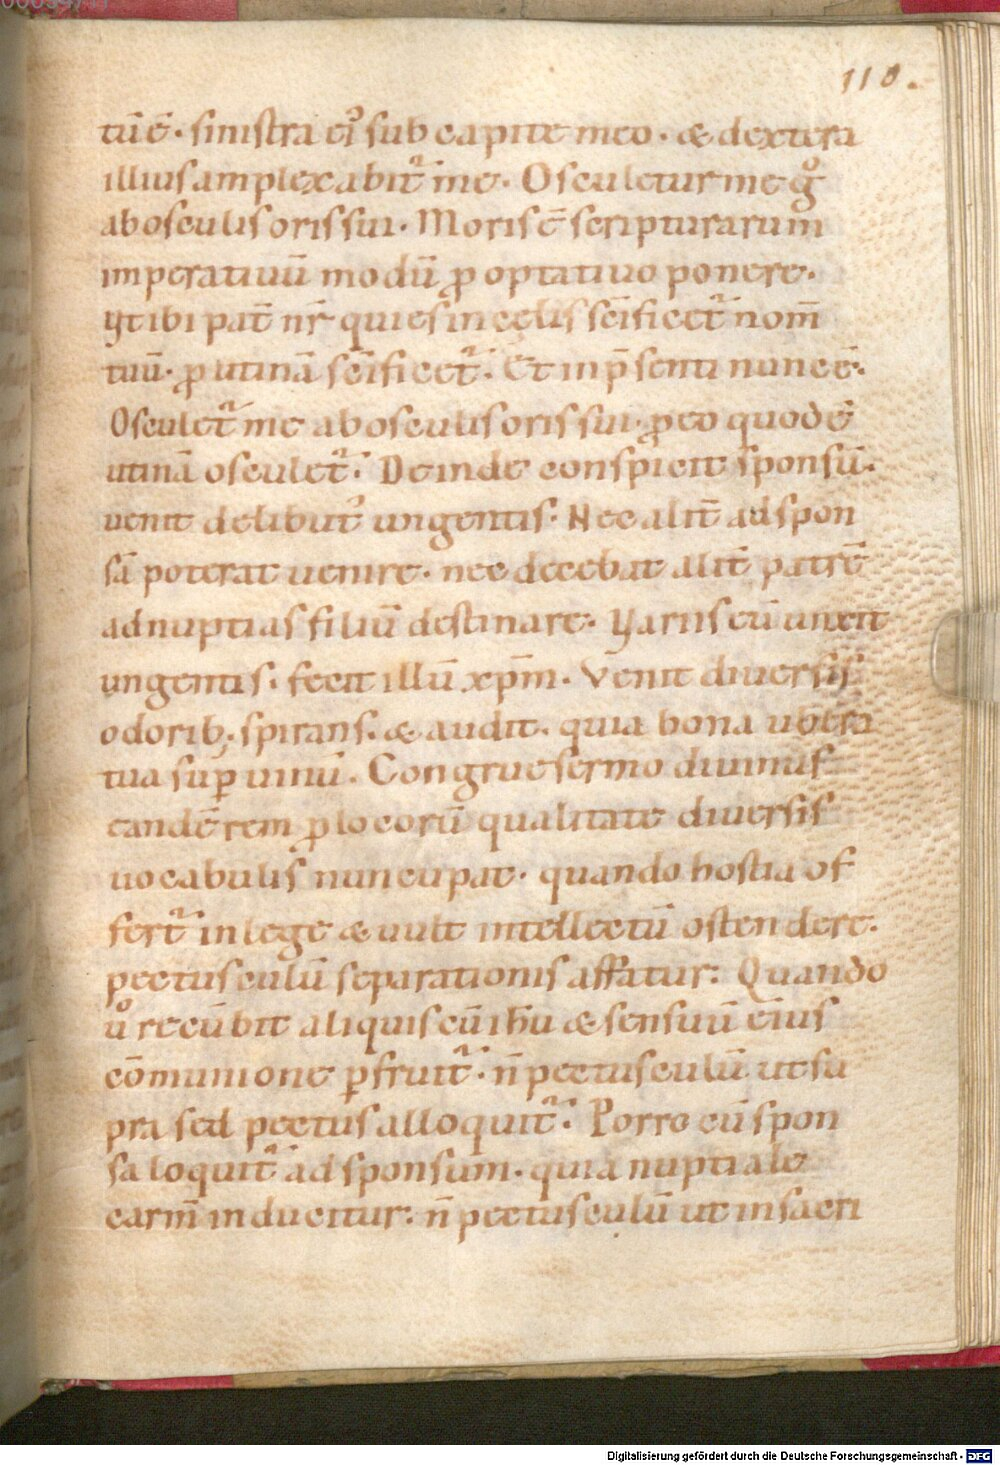 110.
tū ē· sinistra ei᷒ sub capite meo· & dextera
illius amplexabit᷑ me· Osculetur me gͦ
ab osculis oris sui· Moris ē scripturarum
imperatiuū modū ꝓ optatiuo ponere·
ut ibi pat̄ nr̄ qui es in cęlis sc̄ificet᷑ nom̄
tuū· ꝓ utinā sc̄ificet᷑· Et in p̄senti nunc ē·
Osculet᷑ me ab osculis oris sui· ꝓ eo quod ē
utinā osculet᷑· Deinde conspicit sponsū·
uenit delibut᷒ ungentis· Nec alit̄ ad spon
sā poterat uenire· nec decebat alit̄ patrē
ad nuptias filiū destinare· Uariis eū unxit
ungentis· fecit illū xp̄m· Venit diuersis
odorib; spirans· & audit· quia bona ubera
tua sup̄ uinū· Congrue sermo diuinus
eandē rem ꝓ locorū qualitate diuersis
uocabulis nuncupat· quando hostia of
fert᷑ in lege & uult intellectū ostendere·
pectusculū separationis affatur: Quando
uͦ recūbit aliquis cū ihū & sensuū eius
cōmunione ꝑfruit᷑· n̄ pectusculū ut su
pra sed pectus alloquit᷑· Porro cū spon
sa loquit᷑ ad sponsum· quia nuptiale
carm̄ inducitur: n̄ pectusculū ut in sacri
Digitalisierung gefördert durch die Deutsche Forschungsgemeinschaft - DFG